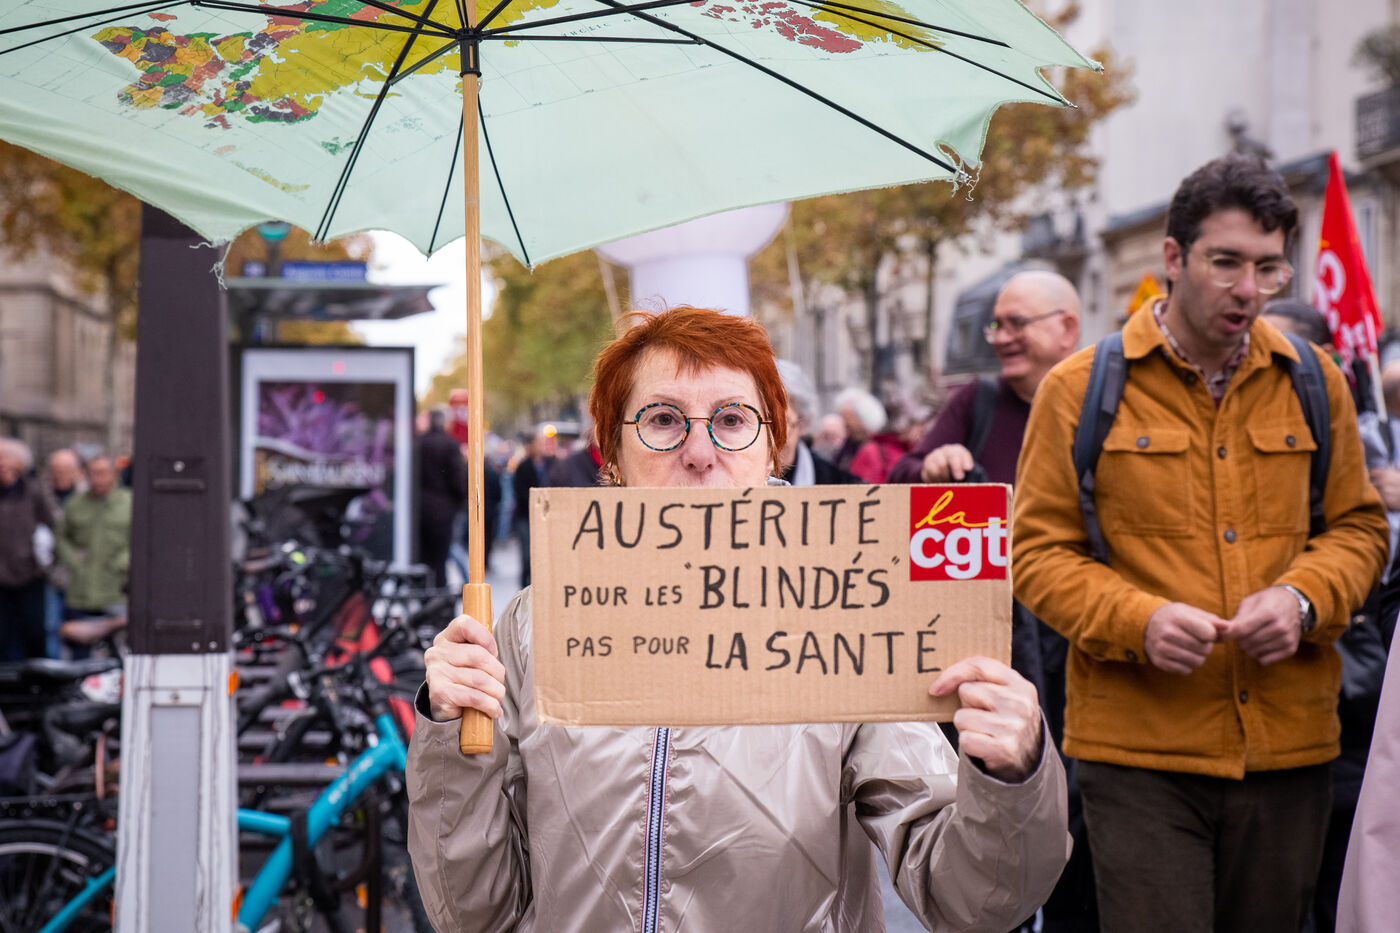 AUSTÉRITÉ
POUR LES "BLINDÉS"
PAS POUR LA SANTÉ
la
cgt
ARCTIC OCEAN